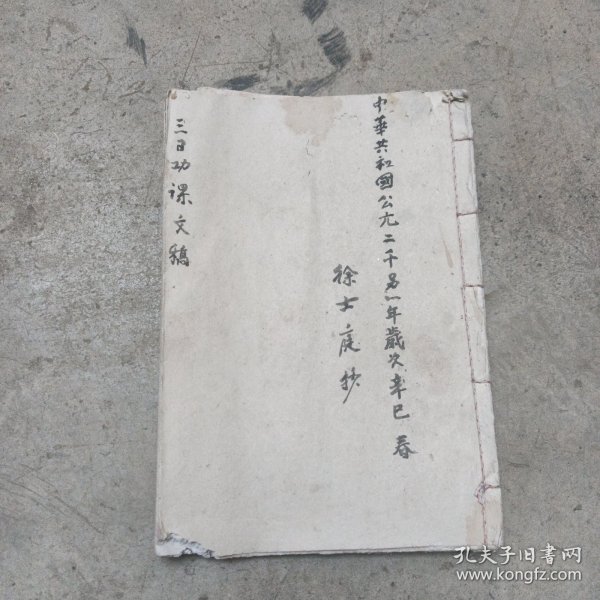 中華共和國公元二千另一年歲次辛巳 春
徐士庭抄
三日功课文稿
孔夫子旧书网
www.kongfz.com